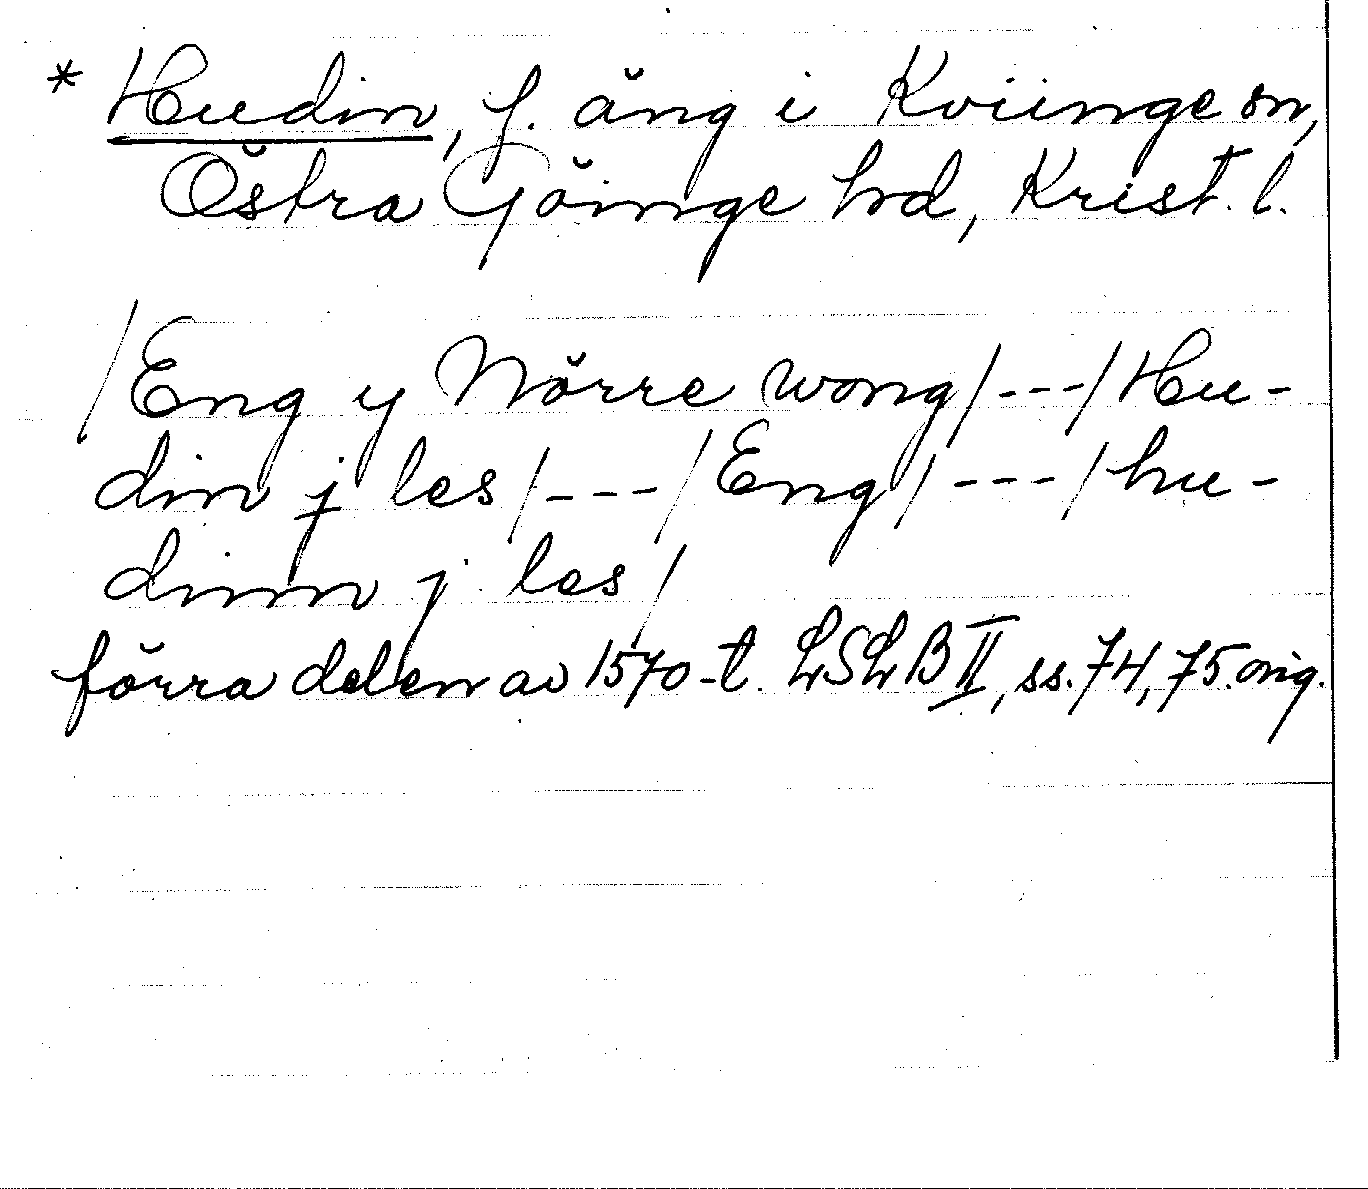 * Hudin, f. äng i Kviinge sn,
Östra Göinge hd, Krist. l.
/Eng y Nörre wong/---/Hu-
din j les/---/Eng/---/hu-
dinn j les/
förra delen av 1570-t. LSLB II, ss. 74, 75. orig.